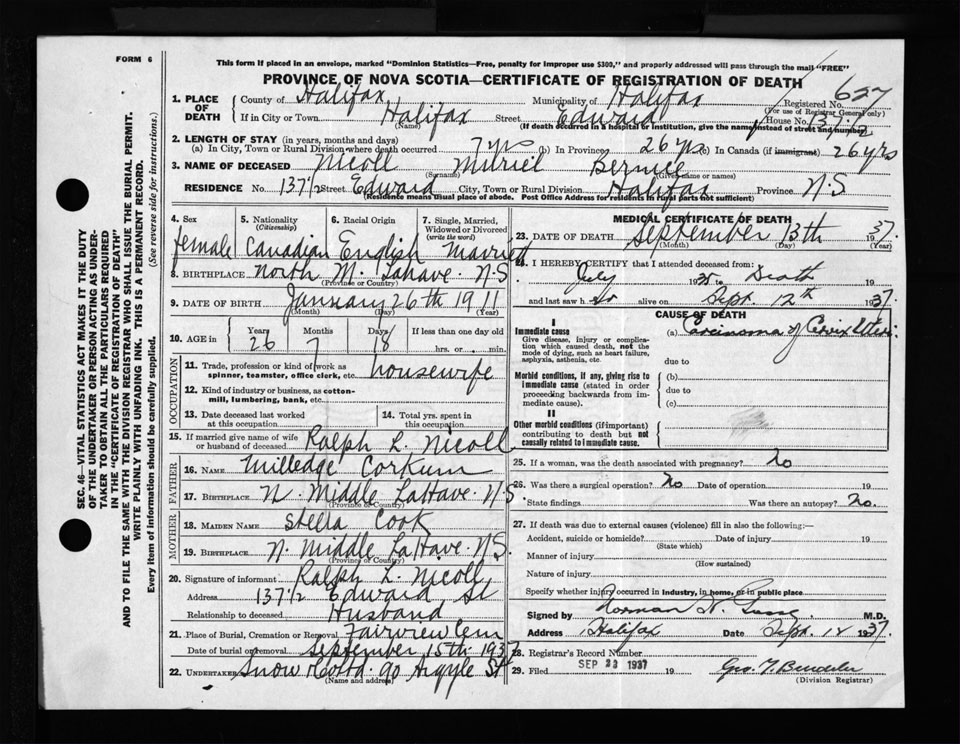 FORM 6
This form if placed in an envelope, marked "Dominion Statistics—Free, penalty for improper use $300," and properly addressed will pass through the mail "FREE"
PROVINCE OF NOVA SCOTIA—CERTIFICATE OF REGISTRATION OF DEATH
627
1. PLACE OF DEATH
County of Halifax Municipality of Halifax Registered No.
(For use of Registrar General only)
If in City or Town Halifax Street Edward House No. 137 1/2
(Name) (If death occurred in a hospital or institution, give the name instead of street and number)
2. LENGTH OF STAY (in years, months and days)
(a) In City, Town or Rural Division where death occurred 7 yrs (b) In Province 26 yrs (c) In Canada (if immigrant) 26 yrs
3. NAME OF DECEASED Nicoll Muriel Bernice
(Surname) (Given name or names)
RESIDENCE No. 137 1/2 Street Edward City, Town or Rural Division Halifax Province N.S.
(Residence means usual place of abode. Post Office Address for residents in rural parts not sufficient)
4. Sex 5. Nationality (Citizenship) 6. Racial Origin 7. Single, Married, Widowed or Divorced (write the word)
female Canadian English Married
8. BIRTHPLACE North M. Lahave. N.S
(Province or Country)
9. DATE OF BIRTH January 26th 1911
(Month) (Day) (Year)
10. AGE in Years Months Days If less than one day old
26 7 18 hrs. or min.
OCCUPATION
11. Trade, profession or kind of work as spinner, teamster, office clerk, etc. housewife
12. Kind of industry or business, as cotton-mill, lumbering, bank, etc.
13. Date deceased last worked at this occupation
14. Total yrs. spent in this occupation
15. If married give name of wife or husband of deceased Ralph L. Nicoll
FATHER
16. NAME Milledge Corkum
17. BIRTHPLACE N. Middle LaHave. N.S.
(Province or Country)
MOTHER
18. MAIDEN NAME Stella Cook
19. BIRTHPLACE N. Middle LaHave. N.S.
(Province or Country)
20. Signature of informant Ralph L. Nicoll
Address 137 1/2 Edward St
Relationship to deceased Husband
21. Place of Burial, Cremation or Removal Fairview Cem
Date of burial or removal September 15th 1937
22. UNDERTAKER Snow & Co Ltd. 90 Argyle St
(Name and address)
MEDICAL CERTIFICATE OF DEATH
23. DATE OF DEATH September 13th 1937.
(Month) (Day) (Year)
24. I HEREBY CERTIFY that I attended deceased from:
July 1935 to Death 19
and last saw her alive on Sept. 12th 1937.
CAUSE OF DEATH
I
Immediate cause
Give disease, injury or complication which caused death, not the mode of dying, such as heart failure, asphyxia, asthenia, etc.
(a) Carcinoma of Cervix Uteri
due to
Morbid conditions, if any, giving rise to immediate cause (stated in order proceeding backwards from immediate cause).
(b)
due to
(c)
II
Other morbid conditions (if important) contributing to death but not causally related to immediate cause.
25. If a woman, was the death associated with pregnancy? No
26. Was there a surgical operation? No Date of operation 19
State findings Was there an autopsy? No.
27. If death was due to external causes (violence) fill in also the following:—
Accident, suicide or homicide? Date of injury 19
(State which)
Manner of injury
(How sustained)
Nature of injury
Specify whether injury occurred in industry, in home, or in public place
Signed by Norman H. Gosse M.D.
Address Halifax Date Sept. 1937.
28. Registrar's Record Number
29. Filed SEP 23 1937 19
(Division Registrar)
SEC. 46—VITAL STATISTICS ACT MAKES IT THE DUTY
OF THE UNDERTAKER OR PERSON ACTING AS UNDER-
TAKER TO OBTAIN ALL THE PARTICULARS REQUIRED
IN THE "CERTIFICATE OF REGISTRATION OF DEATH"
AND TO FILE THE SAME WITH THE DIVISION REGISTRAR WHO SHALL ISSUE THE BURIAL PERMIT.
WRITE PLAINLY WITH UNFADING INK. THIS IS A PERMANENT RECORD.
Every item of information should be carefully supplied. (See reverse side for instructions.)